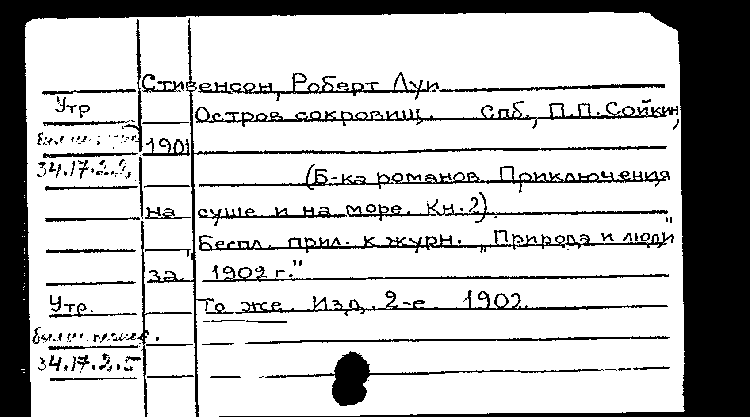 Стивенсон, Роберт Луи
Утр
Остров сокровищ. Спб., П.П. Сойкин,
1901
34.17.2.2.
(Б-ка романов. Приключения
на суше и на море. Кн. 2).
Беспл. прил. к журн. „Природа и люди"
за "1902 г."
Утр. То же. Изд. 2-е 1902.
34.17.2.5